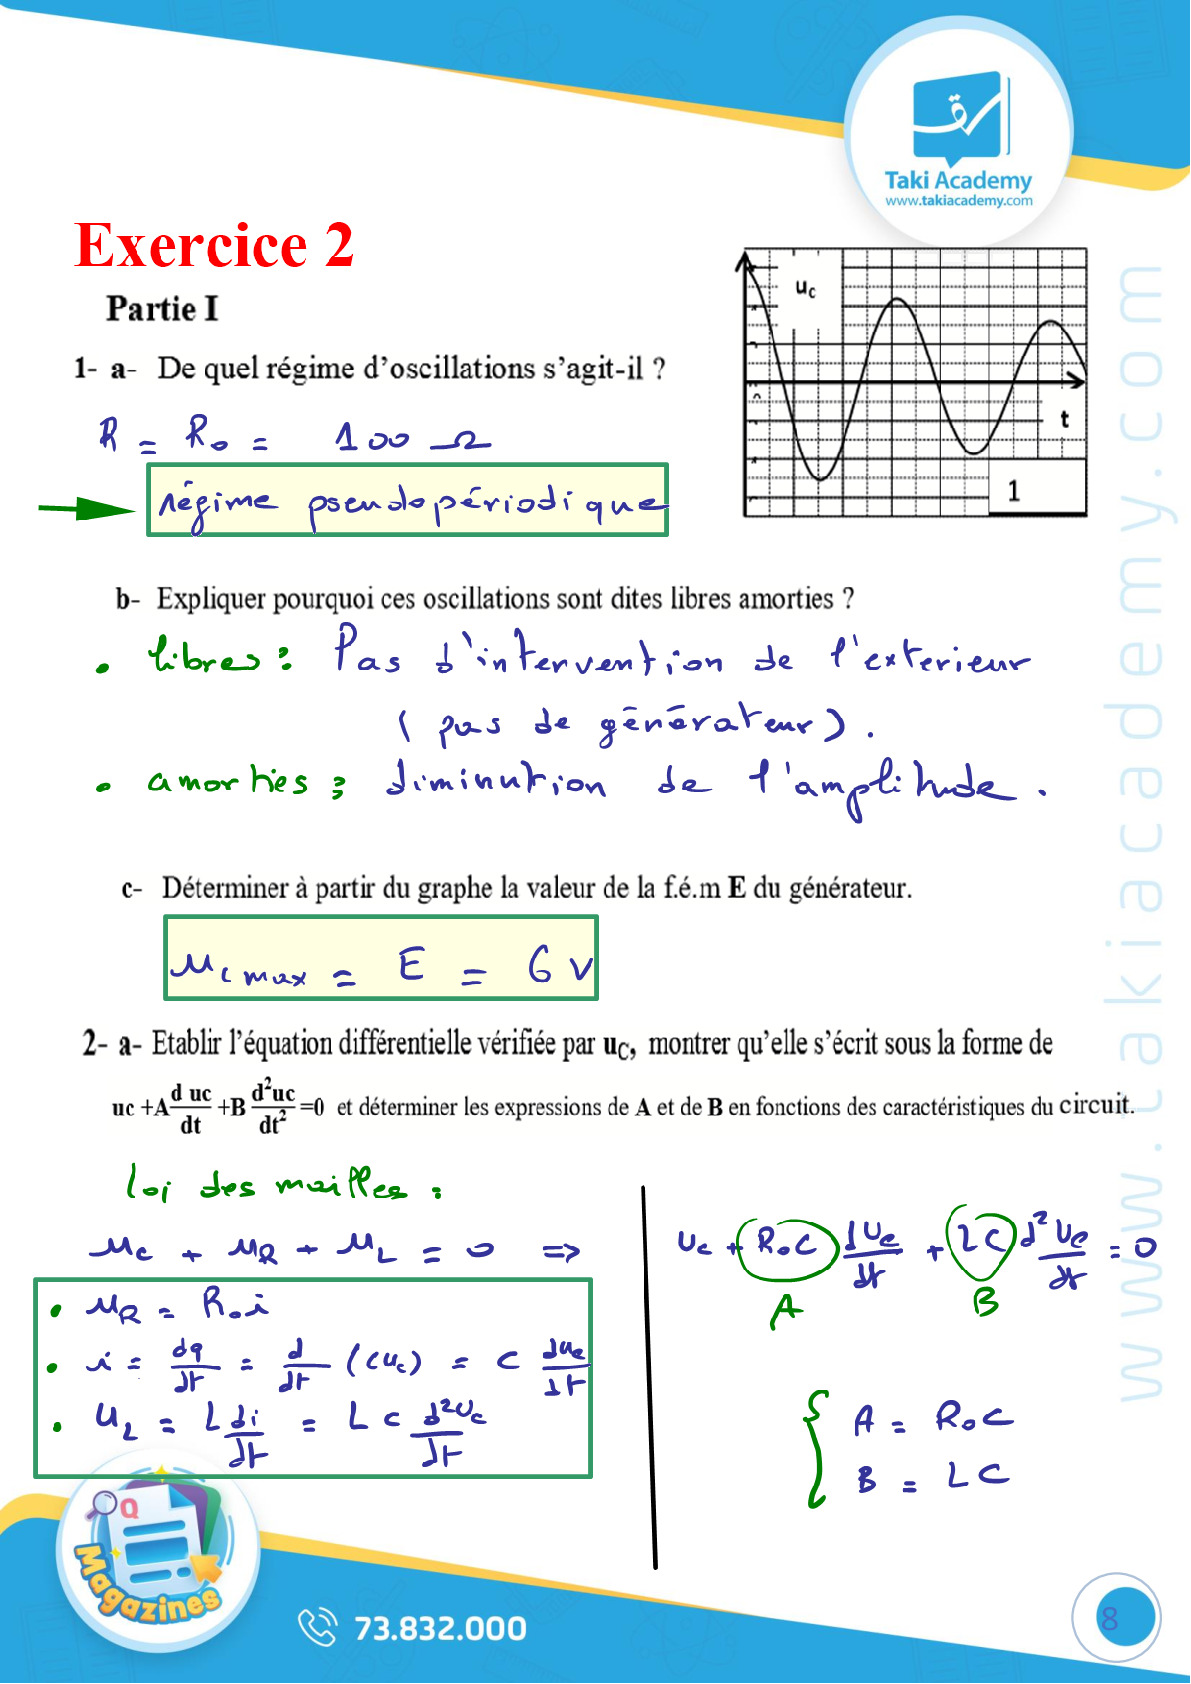 Taki Academy
www.takiacademy.com
Exercice 2
Partie I
1- a- De quel régime d'oscillations s'agit-il ?
R = R₀ = 100 Ω
régime pseudopériodique
uC
t
1
b- Expliquer pourquoi ces oscillations sont dites libres amorties ?
• libres : Pas d'intervention de l'exterieur
( pas de générateur ).
• amorties : diminution de l'amplitude .
c- Déterminer à partir du graphe la valeur de la f.é.m E du générateur.
uc max = E = 6 V
2- a- Etablir l'équation différentielle vérifiée par uC, montrer qu'elle s'écrit sous la forme de
uc +A d uc/dt +B d²uc/dt² =0 et déterminer les expressions de A et de B en fonctions des caractéristiques du circuit.
loi des mailles :
uC + uR + uL = 0 =>
• uR = R₀ i
• i = dq/dt = d/dt (Cuc) = C duc/dt
• UL = L di/dt = L C d²Uc/dt
Uc + R₀C dUc/dt + LC d²Uc/dt = 0
A B
{ A = R₀C
B = LC
Magazines
73.832.000
8
www.takiacademy.com